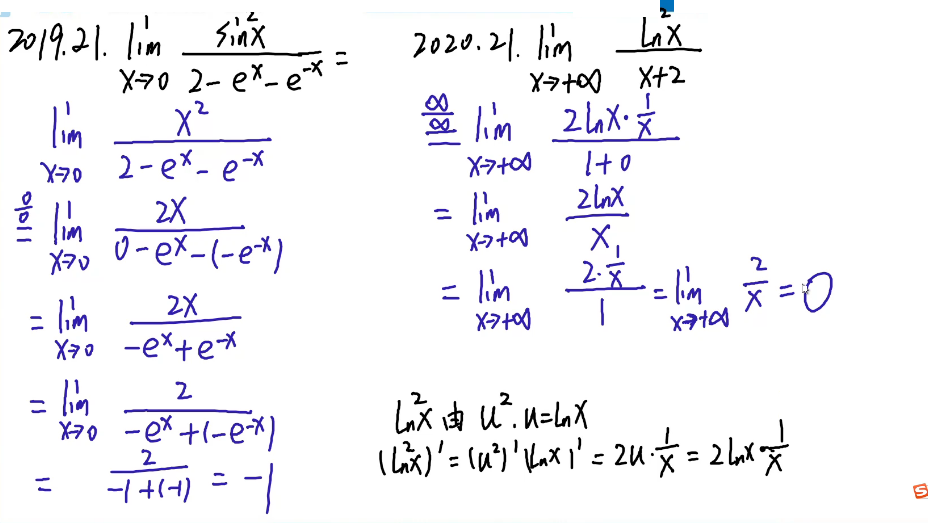 2019.21. lim x→0 sin²x / (2 - eˣ - e⁻ˣ) =
lim x→0 x² / (2 - eˣ - e⁻ˣ)
0/0 = lim x→0 2x / (0 - eˣ - (-e⁻ˣ))
= lim x→0 2x / (-eˣ + e⁻ˣ)
= lim x→0 2 / (-eˣ + (-e⁻ˣ))
= 2 / (-1 + (-1)) = -1
2020.21. lim x→+∞ ln²x / (x+2)
∞/∞ = lim x→+∞ (2lnx · 1/x) / (1+0)
= lim x→+∞ 2lnx / x
= lim x→+∞ (2 · 1/x) / 1 = lim x→+∞ 2/x = 0
ln²x 由 u². u=lnx
(ln²x)' = (u²)' (lnx)' = 2u · 1/x = 2lnx · 1/x